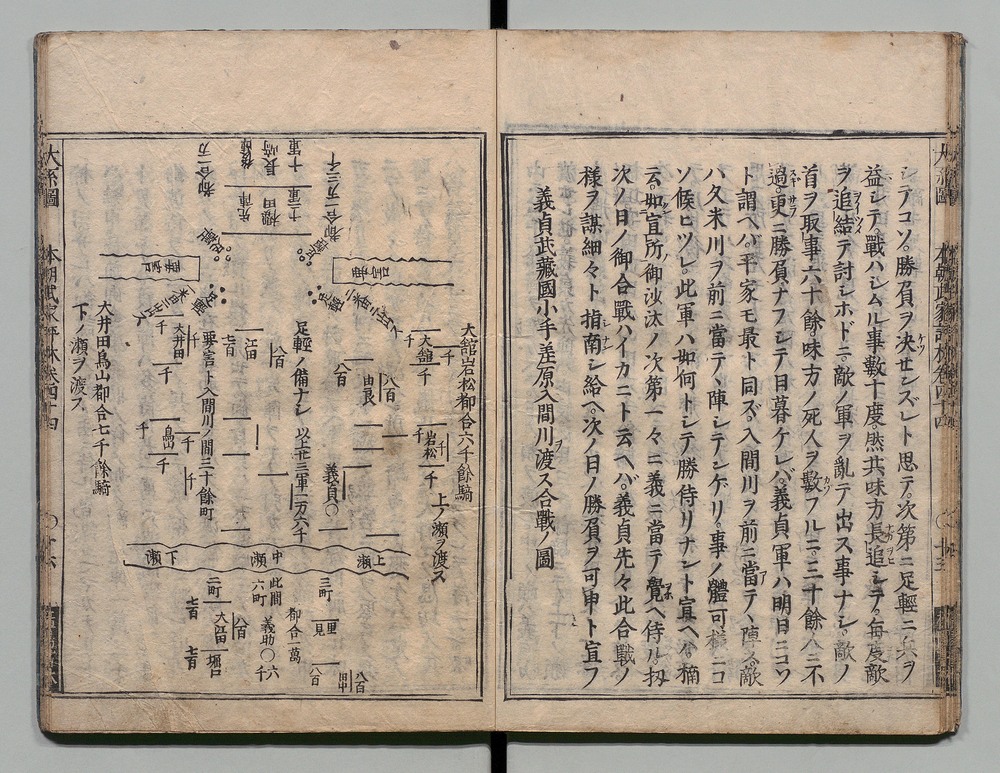 シテコソ。勝負ヲ決センズレト思テ。次第ニ足軽ニ兵ヲ
益シテ。戰ハシムル事數十度。然共味方長追シテ。每度敵
ヲ追結テ討シホドニ。敵ノ軍ヲ亂テ出ス事ナシ。敵ノ
首ヲ取事六十餘。味方ノ死人ヲ數フルニ。三十餘人ニ不
過。更ニ勝負ナフシテ日暮ケレバ。義貞軍ハ明日ニコソ
ト謂ヘバ。平家モ最ト同ズ。入間川ヲ前ニ當テ、陣ス。敵
ハ久米川ヲ前ニ當テ、陣シテンゲリ。事ノ體可様ニコ
ソ候ヒツレ。此軍ハ如何トシテ勝侍リナント宣ヘバ。楠
云。如宜所御沙汰ノ次第一々ニ義ニ當テ覺ヘ侍ル。扨
次ノ日ノ御合戰ハイカニト云ヘバ。義貞先々此合戰ノ
様ヲ謀細々ト指南シ給ヘ。次ノ日ノ勝負ヲ可申ト宣フ
義貞武藏國小手差原入間川ヲ渡ス合戰ノ圖
大舘岩松都合六千餘騎
上ノ瀬ヲ渡ス
都合一万三千
十軍
長崎
後陣
都合一万
十二軍
櫻田
先陣
要害
要害
足軽
足軽
大舘
千
由良
八百
岩松
千
義貞〇
足軽ノ備ナシ
以上廿三軍一万六千
江田
七百
八百
要害ト入間川ノ間三十餘町
大井田
千
鳥山
千
大井田鳥山都合七千餘騎
下ノ瀬ヲ渡ス
上瀬
中瀬
下瀬
三町
里見
八百
田中
八百
都合一萬
此間
六町
義助〇
六千
二町
七百
大江田
八百
堀口
七百